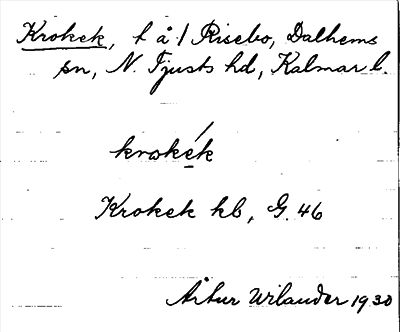 Krokek, t å /1 Risebo, Dalhems
sn, N. Tjusts hd, Kalmar l.
krokék
Krokek kb, G. 46
Artur Wilander 1930